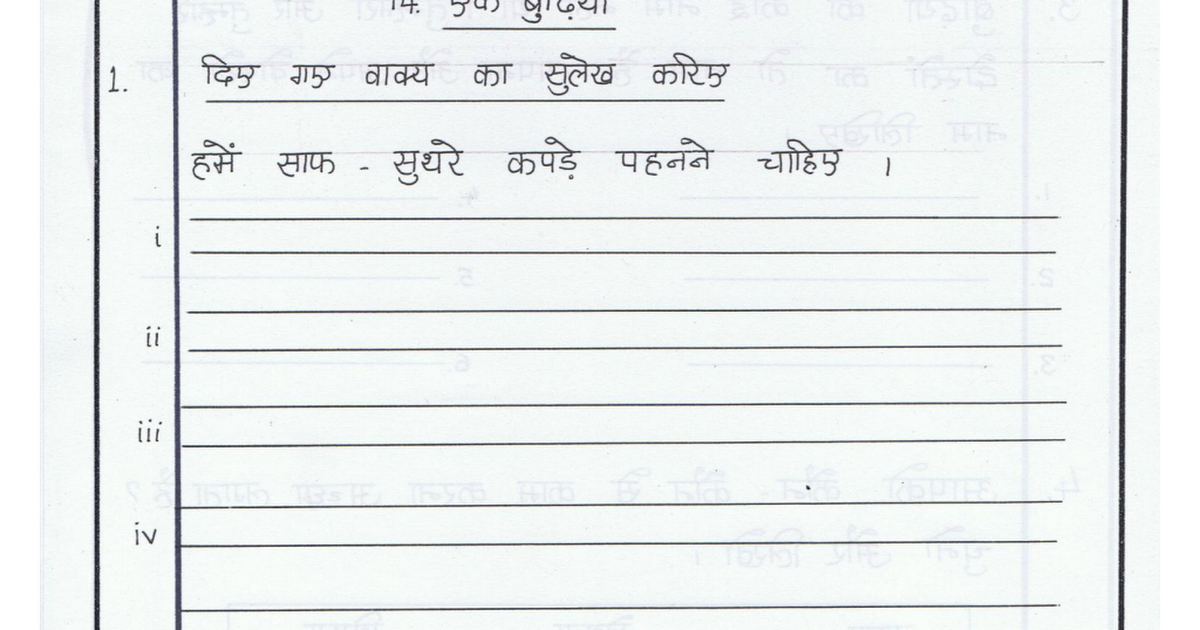 14. एक बुढ़िया
1. दिए गए वाक्य का सुलेख करिए
हमें साफ - सुथरे कपड़े पहनने चाहिए ।
i
ii
iii
iv